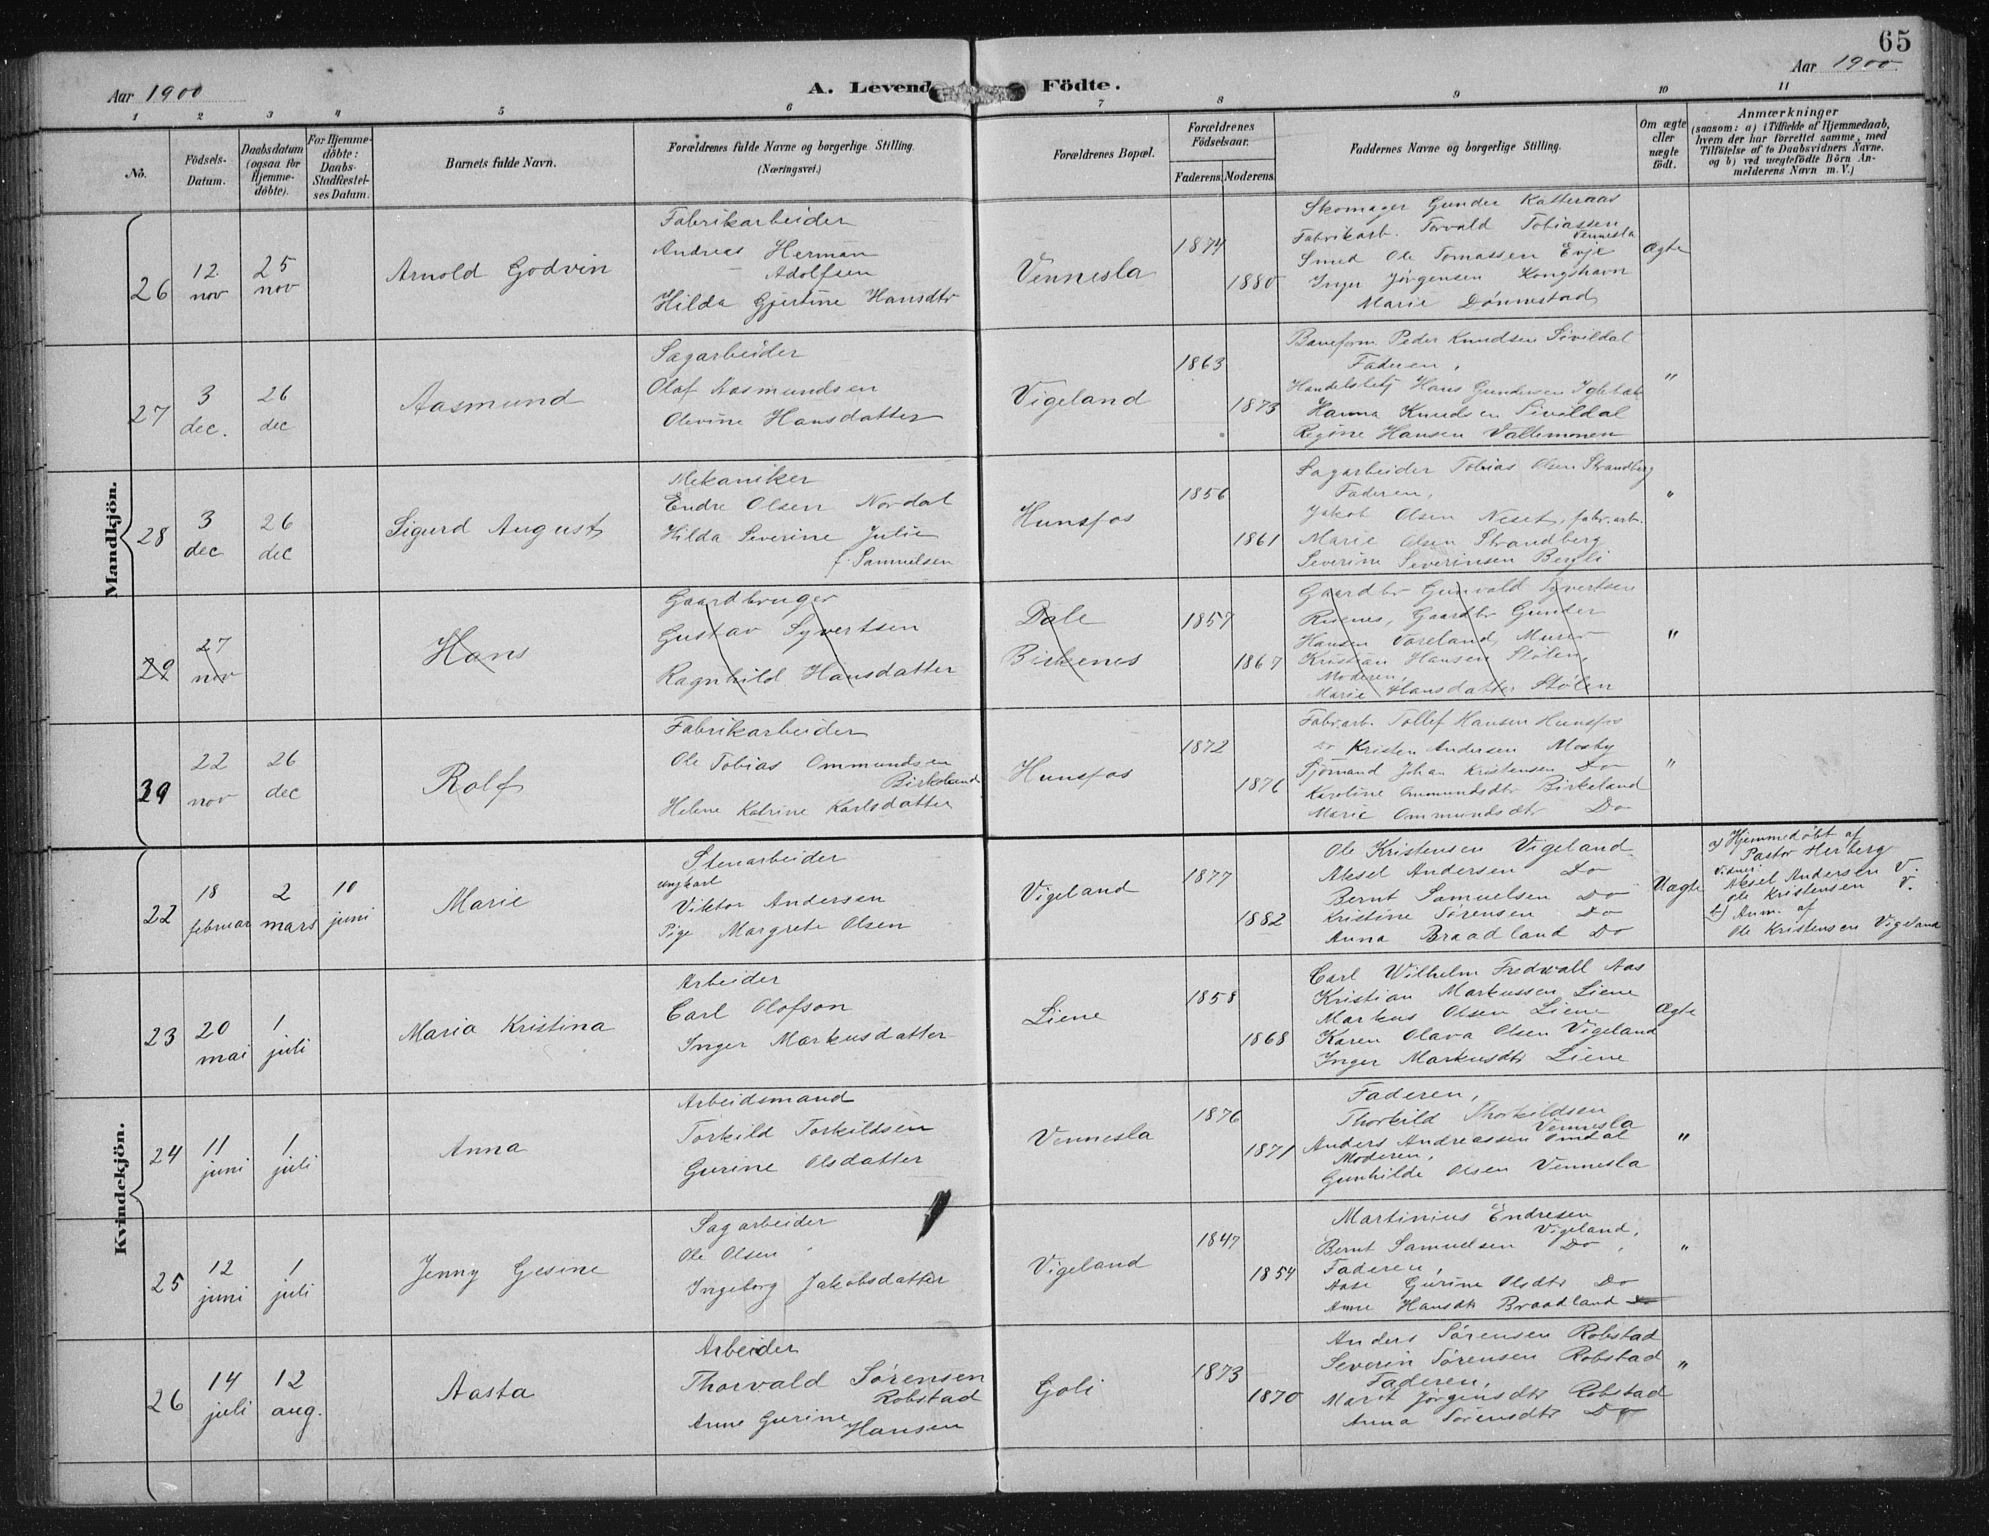 65
Aar 1900
A. Levende Födte.
Aar 1900
1 2 3 4 5 6 7 8 9 10 11
No.
Födsels-
Datum.
Daabsdatum
(ogsaa for
Hjemme-
döbte).
For Hjemme-
döbte:
Daabs-
Stadfæstel-
ses Datum.
Barnets fulde Navn.
Forældrenes fulde Navne og borgerlige Stilling.
(Næringsvei.)
Forældrenes Bopæl.
Forældrenes
Födselsaar.
Faderens. Moderens.
Faddernes Navne og borgerlige Stilling.
Om ægte
eller
uægte
födt.
Anmærkninger
(saasom: a) i Tilfælde af Hjemmedaab,
hvem der har forrettet samme, med
Tilföielse af to Daabsvidners Navne.
og b) ved uægtefödte Börn An-
melderens Navn m. V.)
Mandkjön.
26
12
nov
25
nov
Arnold Godvin
Fabrikarbeider
Andreas Herman
Adolfsen
Hilda Gjertine Hansdtr
Vennesla
1874
1880
Skomager Gunder Katteraas
Fabrikarb. Torvald Tobiassen
Vennesla
Smed Ole Tomassen Evje
Inger Jørgensen Kongshavn
Marie Dønnestad
Ægte
27
3
dec.
26
dec
Aasmund
Sagarbeider
Olaf Aasmundsen
Olevine Hansdatter
Vigeland
1863
1873
Baneform. Peder Knudsen Sivildal
Faderen,
Hans Gundersen
Hanna Knudsen Sivildal
Regine Hansen Vallemonen
"
28
3
dec
26
dec
Sigurd August
Mekaniker
Endre Olsen Nordal
Hilda Severine Julie
f. Samuelsen
Hunsfos
1856
1861
Sagarbeider Tobias Olsen Strandberg
Faderen,
Jakob Olsen Neset, fabr.arb.
Marie Olsen Strandberg
Severine Severinsen Bergli
"
29
27
nov
Hans
Gaardbruger
Gustav Syvertsen
Ragnhild Hansdatter
Dale
Birkenes
1857
1867
Gaardbr Gunvald Syvertsen
Risenes, Gaardbr Gunder
Hansen Vareland, Murer
Kristian Hansen Stølen,
Moderen,
Marie Hansdatter Stølen
"
29
22
nov
26
dec
Rolf
Fabrikarbeider
Ole Tobias Ommundsen
Birkeland
Helene Katrine Karlsdatter
Hunsfos
1872
1876
Fabr.arb. Tollef Hansen Hunsfos
Do Kristen Andersen Mosby
Sjømand Johan Kristensen Do
Karoline Ommundsdtr Birkeland
Marie Ommundsdtr Do
"
Kvindekjön.
22
18
februar
2
mars
10
juni
Marie
Stenarbeider
ungkarl
Viktor Andersen
Pige Margrete Olsen
Vigeland
1877
1882
Ole Kristensen Vigeland
Aksel Andersen Do
Bernt Samuelsen Do
Kristine Sørensen Do
Anna Braadland Do
Uægte
a) Hjemmedøbt af
Pastor Herberg
Vidner
Aksel Andersen V.
Ole Kristensen V.
b) Anm. af
Ole Kristensen Vigeland
23
20
mai
1
juli
Maria Kristina
Arbeider
Carl Olofson
Inger Markusdatter
Liene
1858
1868
Carl Wilhelm Fredwall Aas
Kristian Markussen Liene
Markus Olsen Liene
Karen Olava Olsen Vigeland
Inger Markusdtr Liene
Ægte
24
11
juni
1
juli
Anna
Arbeidsmand
Torkild Torkildsen
Gurine Olsdatter
Vennesla
1876
1871
Faderen,
Thorkild Thorkildsen
Vennesla
Anders Andreassen Omdal
Moderen,
Gunhilde Olsen Vennesla
"
25
12
juni
1
juli
Jenny Gesine
Sagarbeider
Ole Olsen
Ingeborg Jakobsdatter
Vigeland
1847
1854
Martinius Endresen
Vigeland,
Bernt Samuelsen Do,
Faderen,
Aase Gurine Olsdtr Do
Anne Hansdtr Braadland Do
"
26
14
juli
12
aug.
Aasta
Arbeider
Thorvald Sørensen
Robstad
Anne Gurine
Hansen
Goli
1873
1870
Anders Sørensen Robstad
Severin Sørensen Robstad
Faderen,
Marit Jørgensdtr Robstad
Anna Sørensdtr Do
"